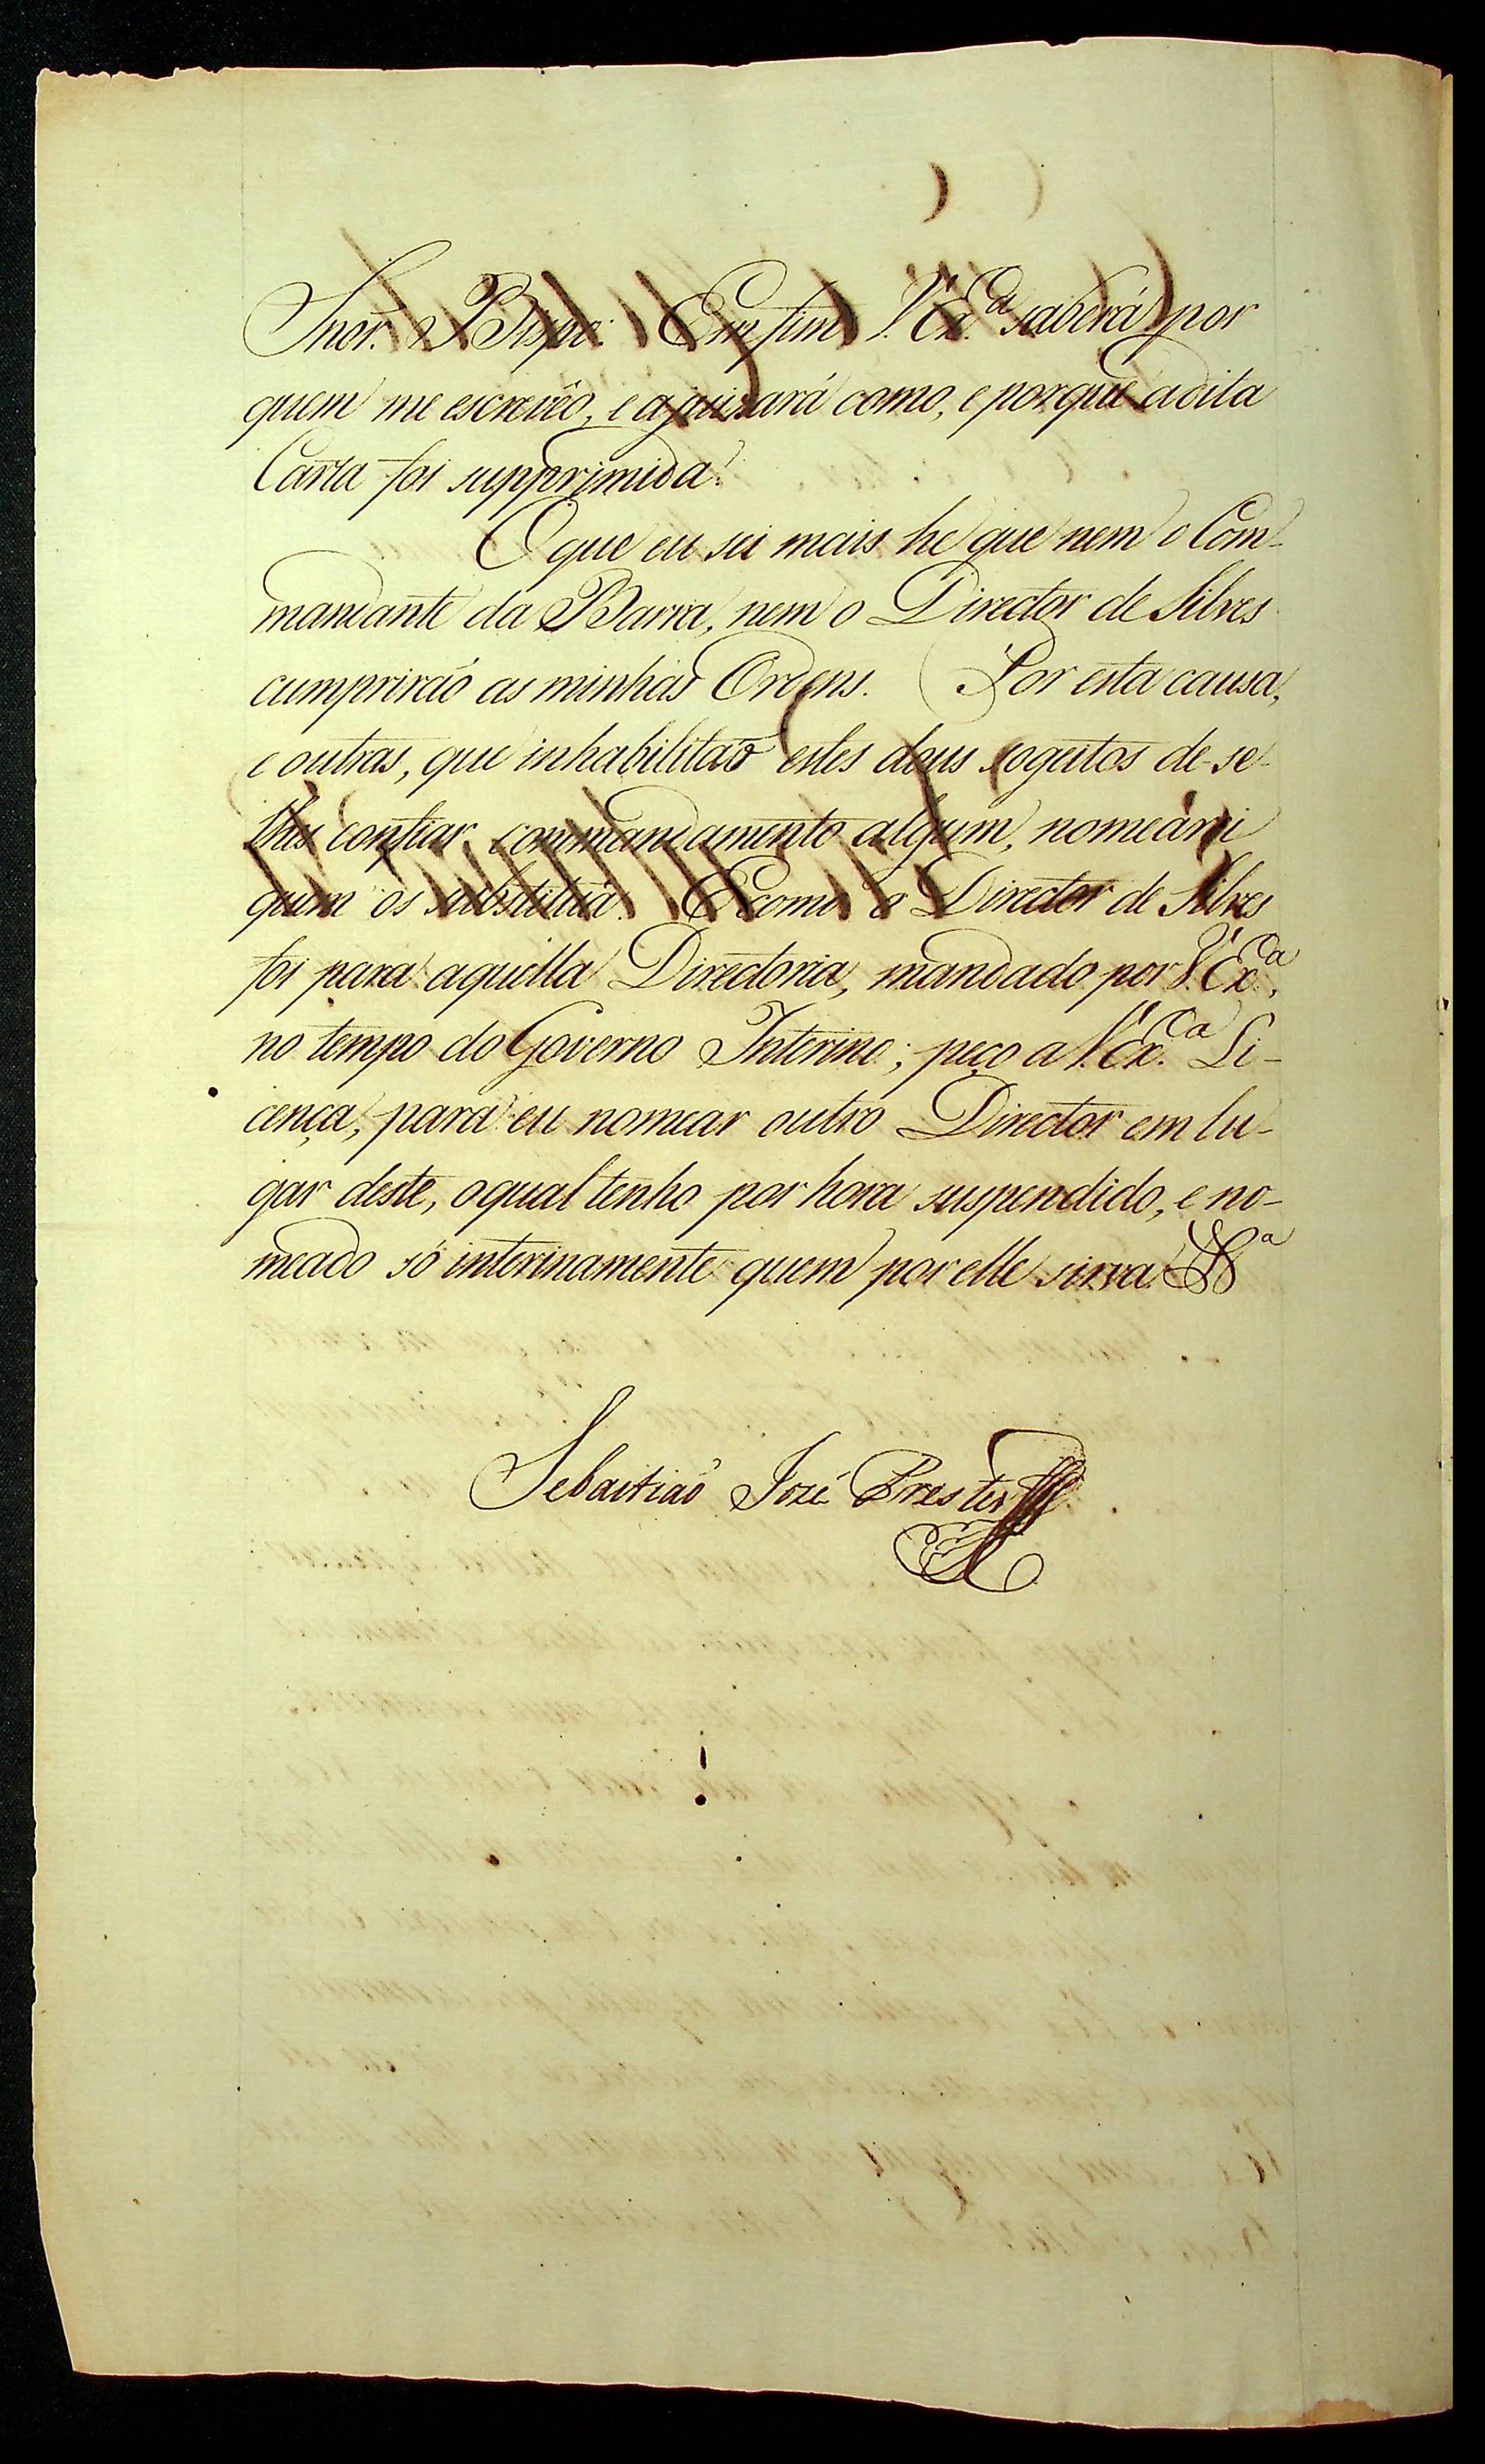 Snor. Bispo: Em fim V. Ex.ca saberá por
quem me escrevêo, e aguizará como, e porque a dita
Carta foi supprimida.
O que eu sei mais he que nem o Com-
mandante da Barra, nem o Director de Silves
cumprirão as minhas Ordens. Por esta causa,
e outras, que inhabilitão estes dous sogeitos de se
lhes confiar commandamento algum, nomeárei
quem os substitua. E como o Director de Silves
foi para aquella Directoria, mandado por V. Ex.ca,
no tempo do Governo Interino; peço a V. Ex.ca Li-
cença, para eu nomear outro Director em lu-
gar deste, o qual tenho por hora suspendido, e no-
meado só interinamente quem por elle sirva.
Sebastião Jozé Prestes